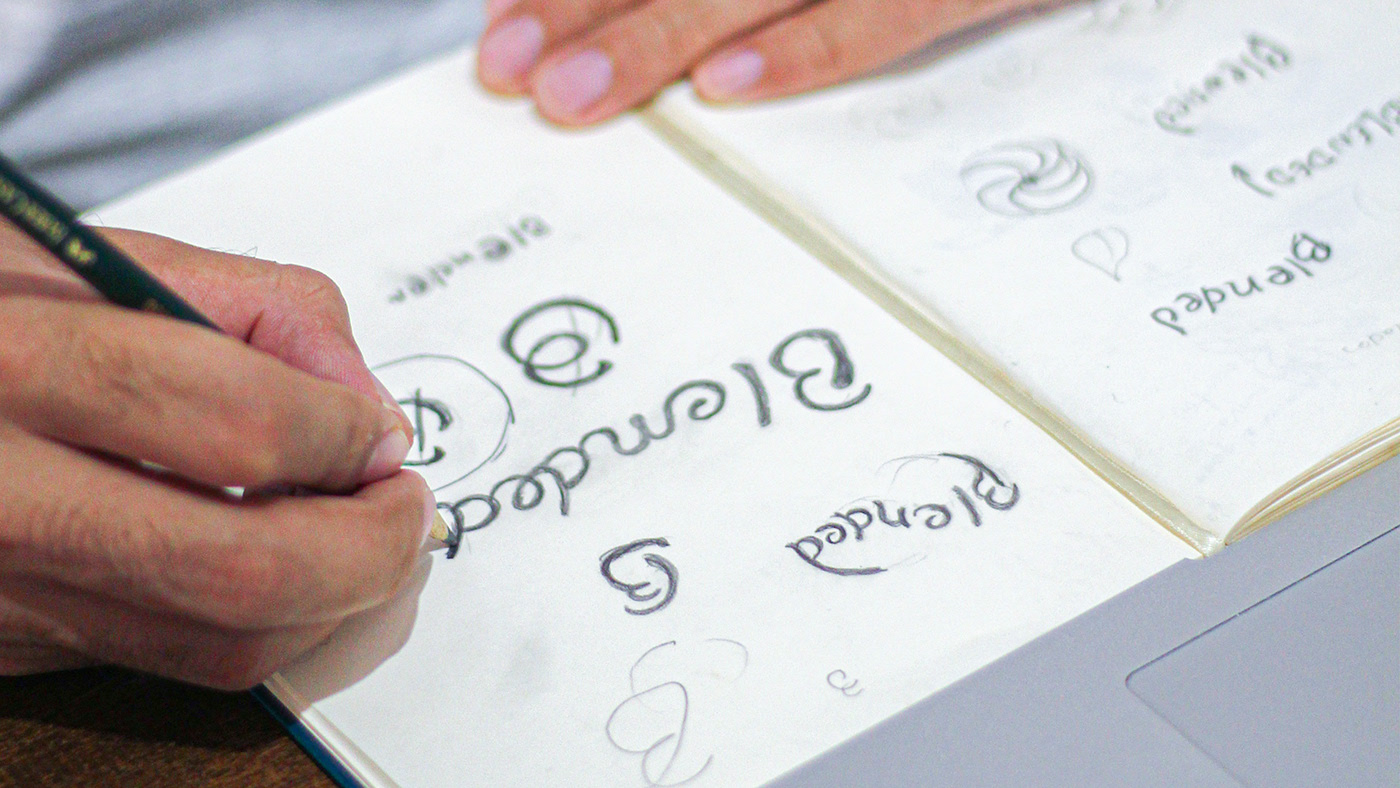 Blended
BLENDED
Blended
B
B
Blended
B
Blended
B
B
Blender